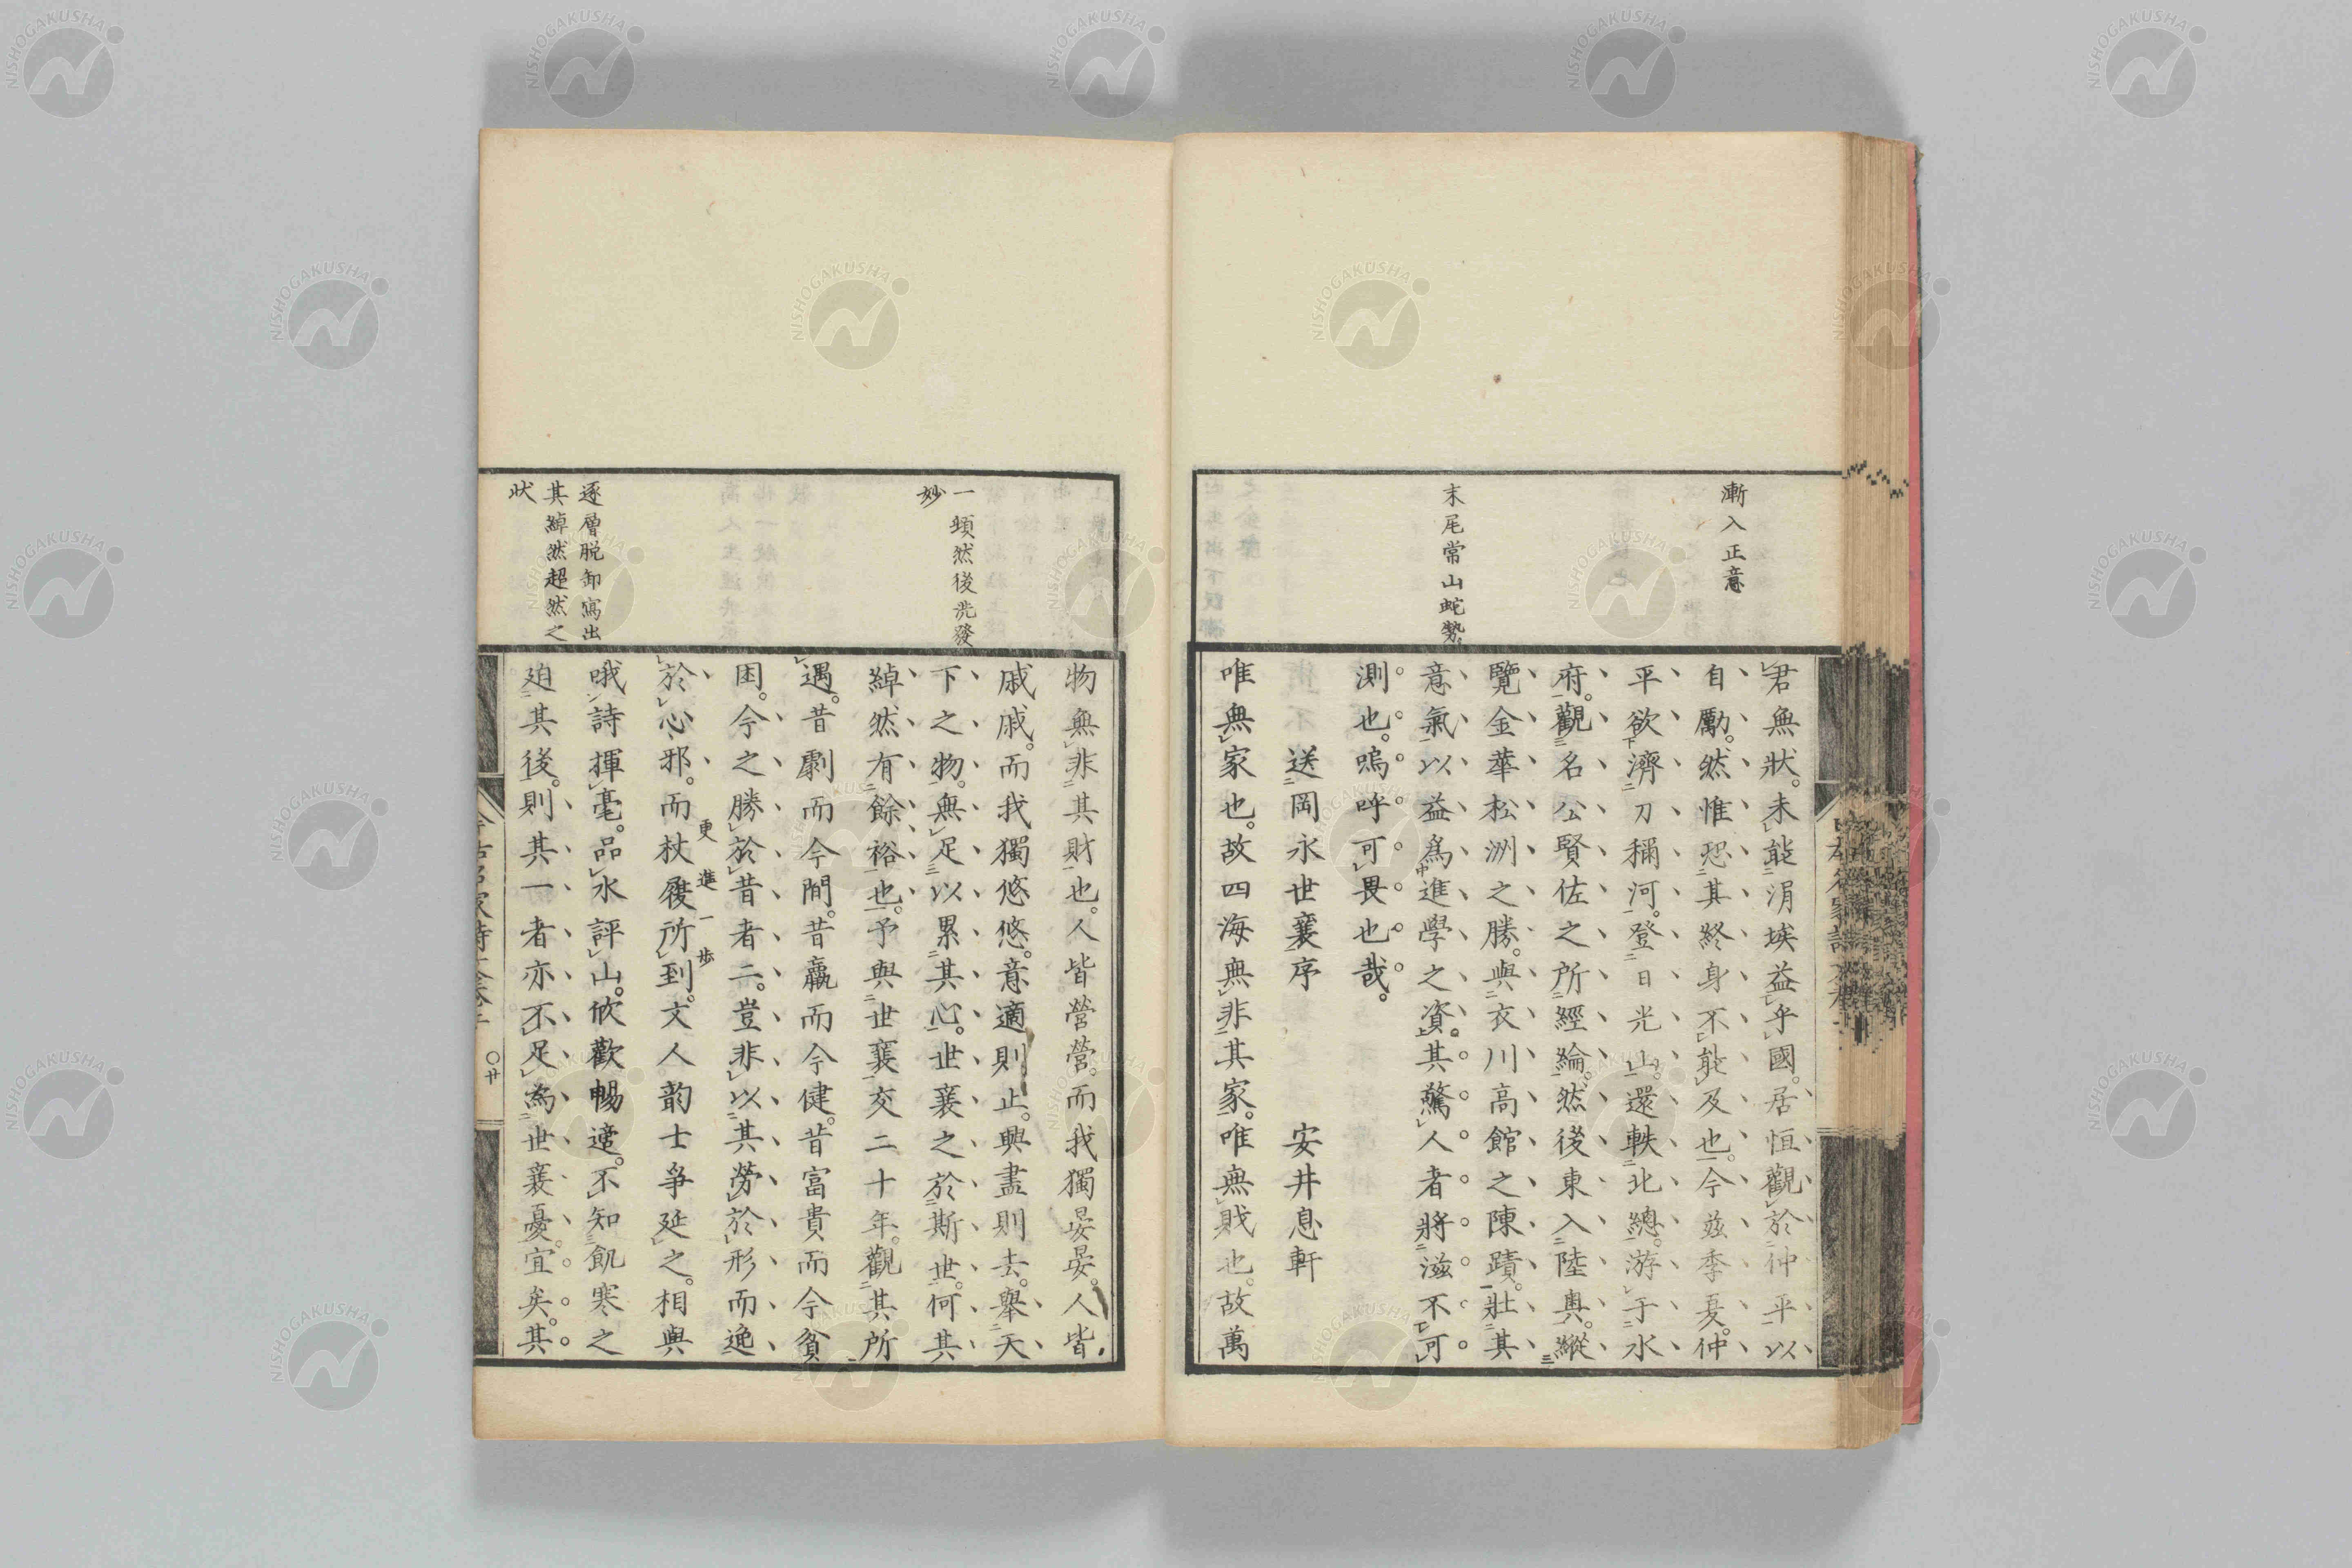 漸入正意
末尾常山蛇勢
君無狀。未能涓埃益乎國。居恒觀於仲平以
自勵。然惟恐其終身不能及也。今玆季夏。仲
平欲濟刀禰河。登日光山。還軼北總。游于水
府。觀名公賢佐之所經綸。然後東入陸奧。縱
覽金華松洲之勝。與衣川高館之陳蹟。壯其
意氣以益爲進學之資。其驚人者。將滋不可
測也。嗚呼可畏也哉。
送岡永世襄序　安井息軒
唯無家也。故四海無非其家。唯無財也。故萬
一頓然後洗發
妙
逐層脫卸寫出
其綽然超然之
狀
物無非其財也。人皆營營。而我獨晏晏。人皆
戚戚。而我獨悠悠。意適則止。興盡則去。舉天
下之物。無足以累其心。世襄之於斯世。何其
綽然有餘裕也。予與世襄交二十年。觀其所
遇。昔劇而今閒。昔羸而今健。昔富貴而今貧
困。今之勝於昔者二。豈非以其勞於形而逸
於心邪。而杖履所到。文人韵士爭延之。相與
更進一步
哦詩揮毫。品水評山。欣歡暢適。不知飢寒之
廹其後。則其一者亦不足爲世襄憂。宜矣。其
〇廿
NISHOGAKUSHA